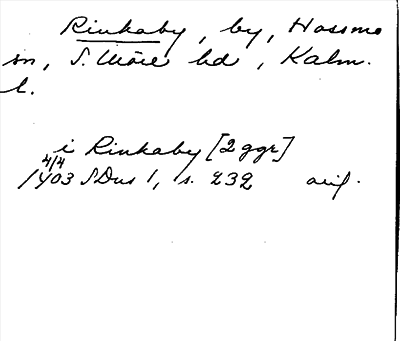 Rinkaby, by, Hossmo
sn, S. Möre hd, Kalm.
l.
i Rinkaby [2 ggr]
4/4
1403 SDns 1, s. 232 avs.